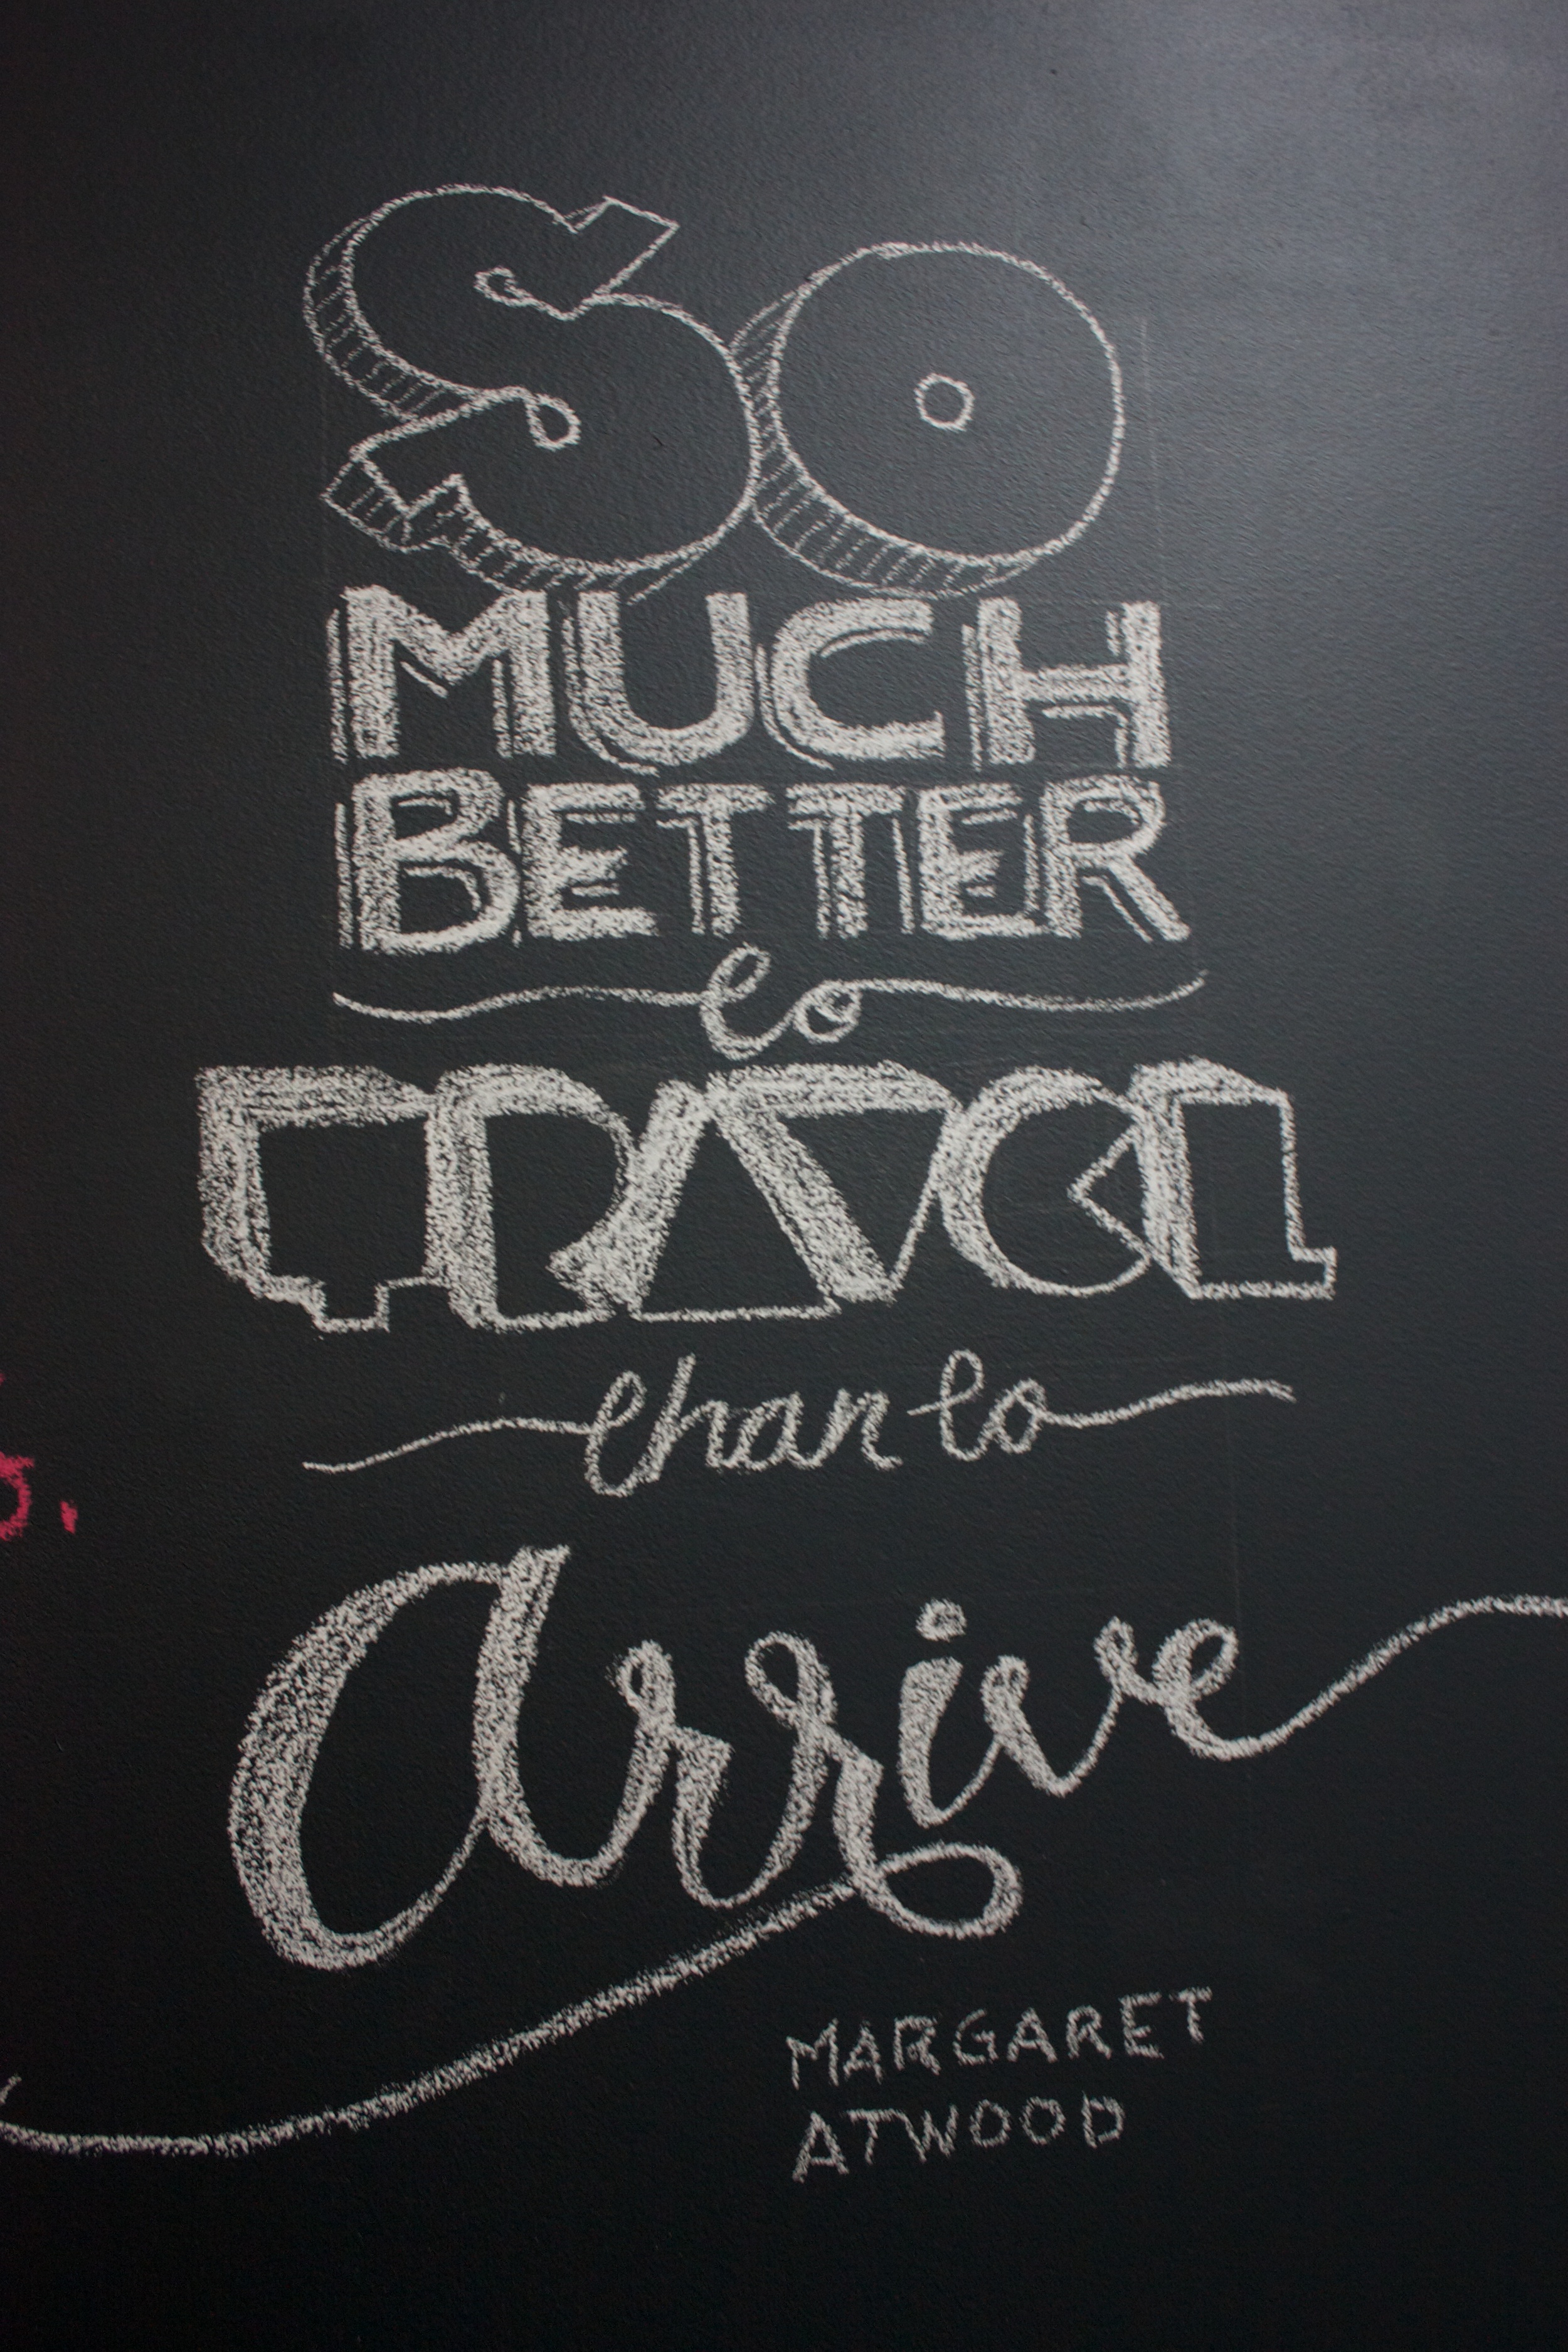 SO
MUCH
BETTER
to
TRAVEL
than to
Arrive
MARGARET
ATWOOD